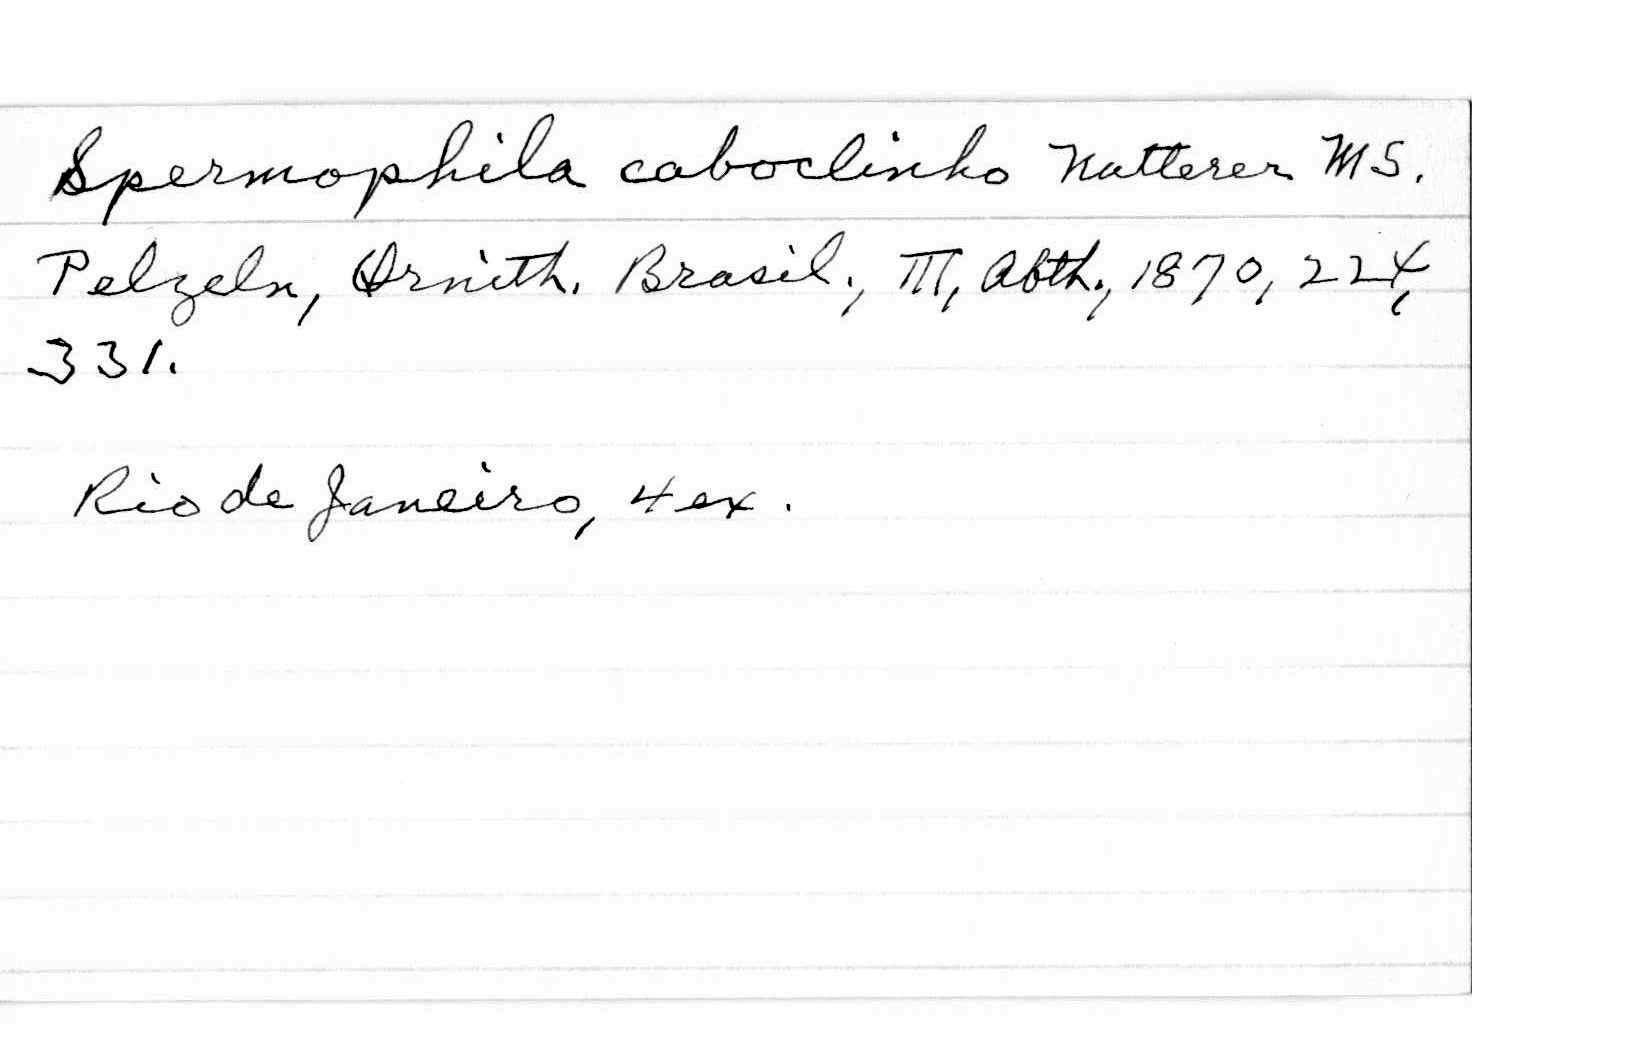 Spermophila caboclinho Natterer MS.
Pelzeln, Ornith. Brasil., III, Abth., 1870, 224,
331.
Rio de Janeiro, 4 ex.